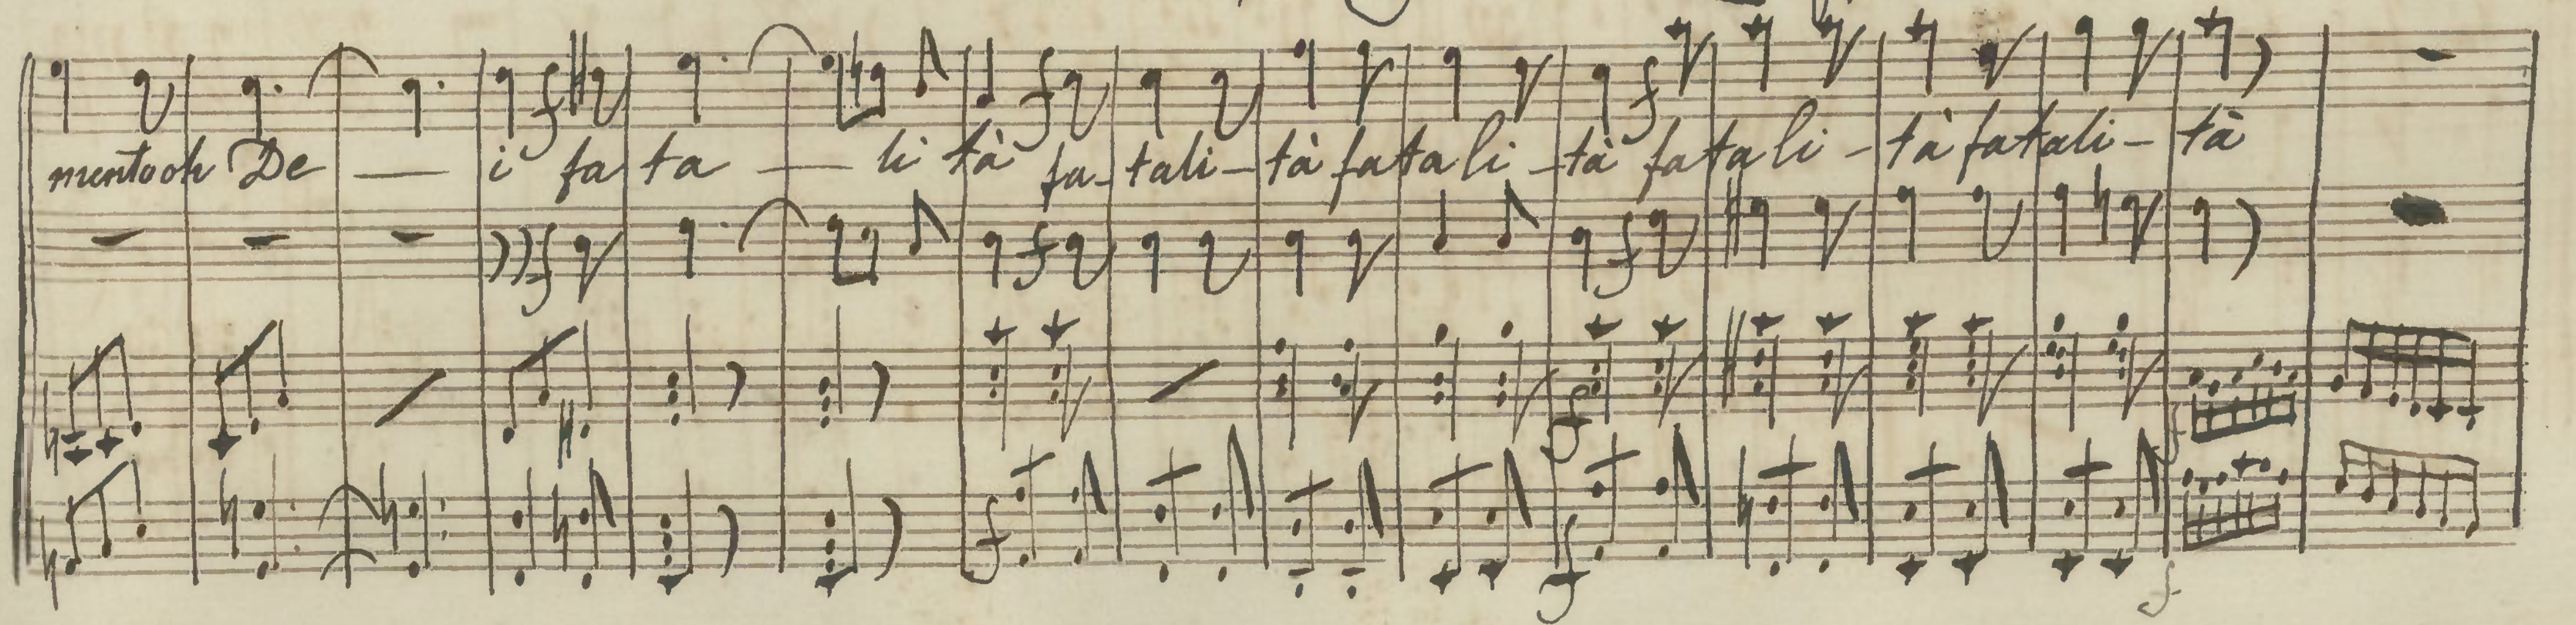 mento oh De — i fa ta — li tà fa- tali- tà fatali- tà fatali- tà fatali- tà